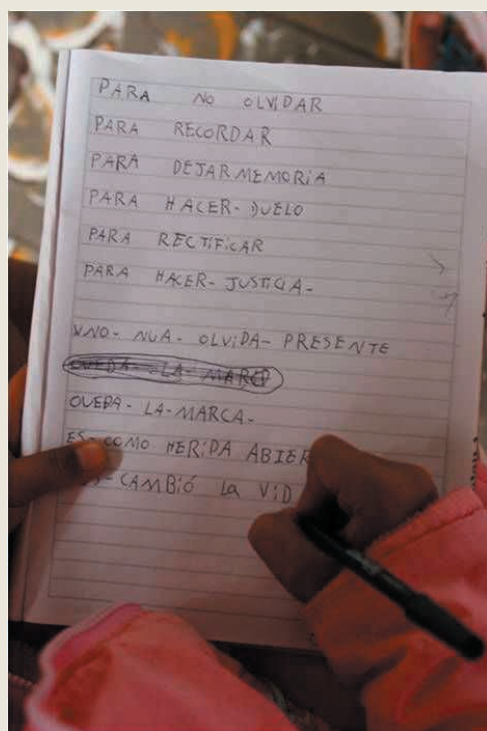 PARA NO OLVIDAR
PARA RECORDAR
PARA DEJAR MEMORIA
PARA HACER-DUELO
PARA RECTIFICAR
PARA HACER-JUSTICIA-
UNO- NUA- OLVIDA- PRESENTE
QUEDA-LA-MARCA-
ES-COMO HERIDA ABIER
-CAMBIÓ LA VID